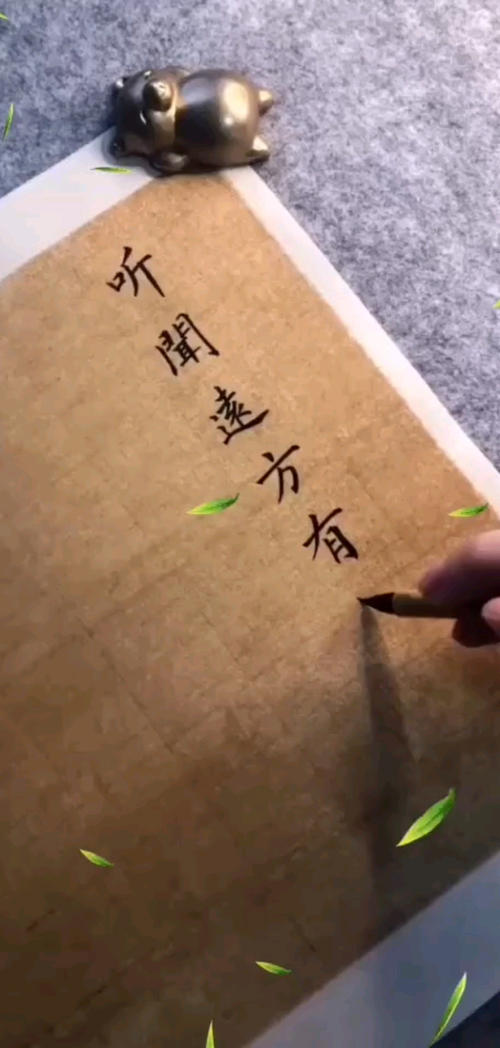 听聞遠方有